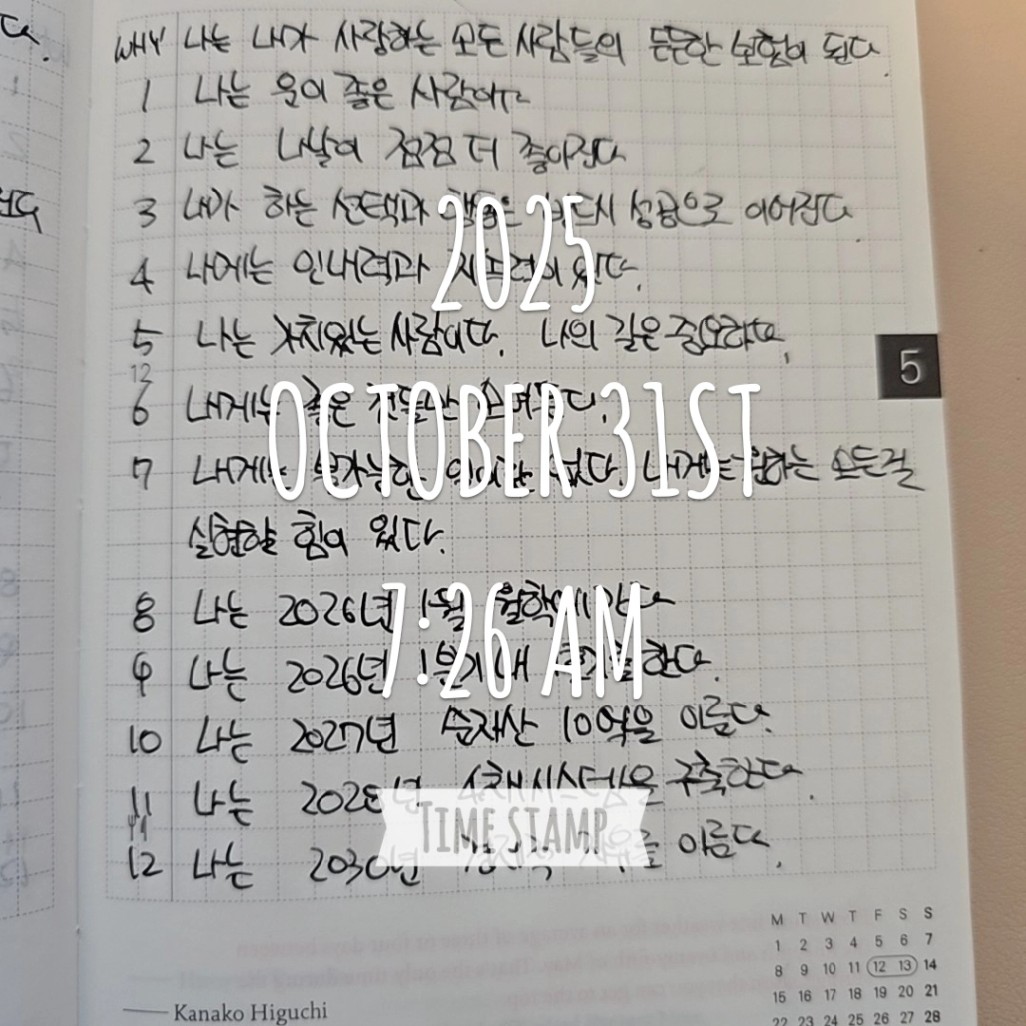 WHY 나는 내가 사랑하는 모든 사람들의 든든한 보험이 된다.
1 나는 운이 좋은 사람이다
2 나는 나날이 점점 더 좋아진다
3 내가 하는 선택과 행동은 반드시 성공으로 이어진다
2025
4 나에게는 인내력과 있다.
5 나는 가치있는 사람이다. 나의 길은 중요하다.
5
12
6 내게는 좋은
OCTOBER 31ST
7 내게는 불가능한 없다. 내게는 원하는 모든걸
실현할 힘이 있다.
8 나는 2026년 1월 간다
7:26 AM
9 나는 2026년 1분기 내 한다.
10 나는 2027년 순재산 10억을 이룬다.
11 나는 2028년 구축한다.
TIME STAMP
12 나는 2030년 이룬다.
M T W T F S S
1 2 3 4 5 6 7
8 9 10 11 12 13 14
15 16 17 18 19 20 21
22 23 24 25 26 27 28
Kanako Higuchi